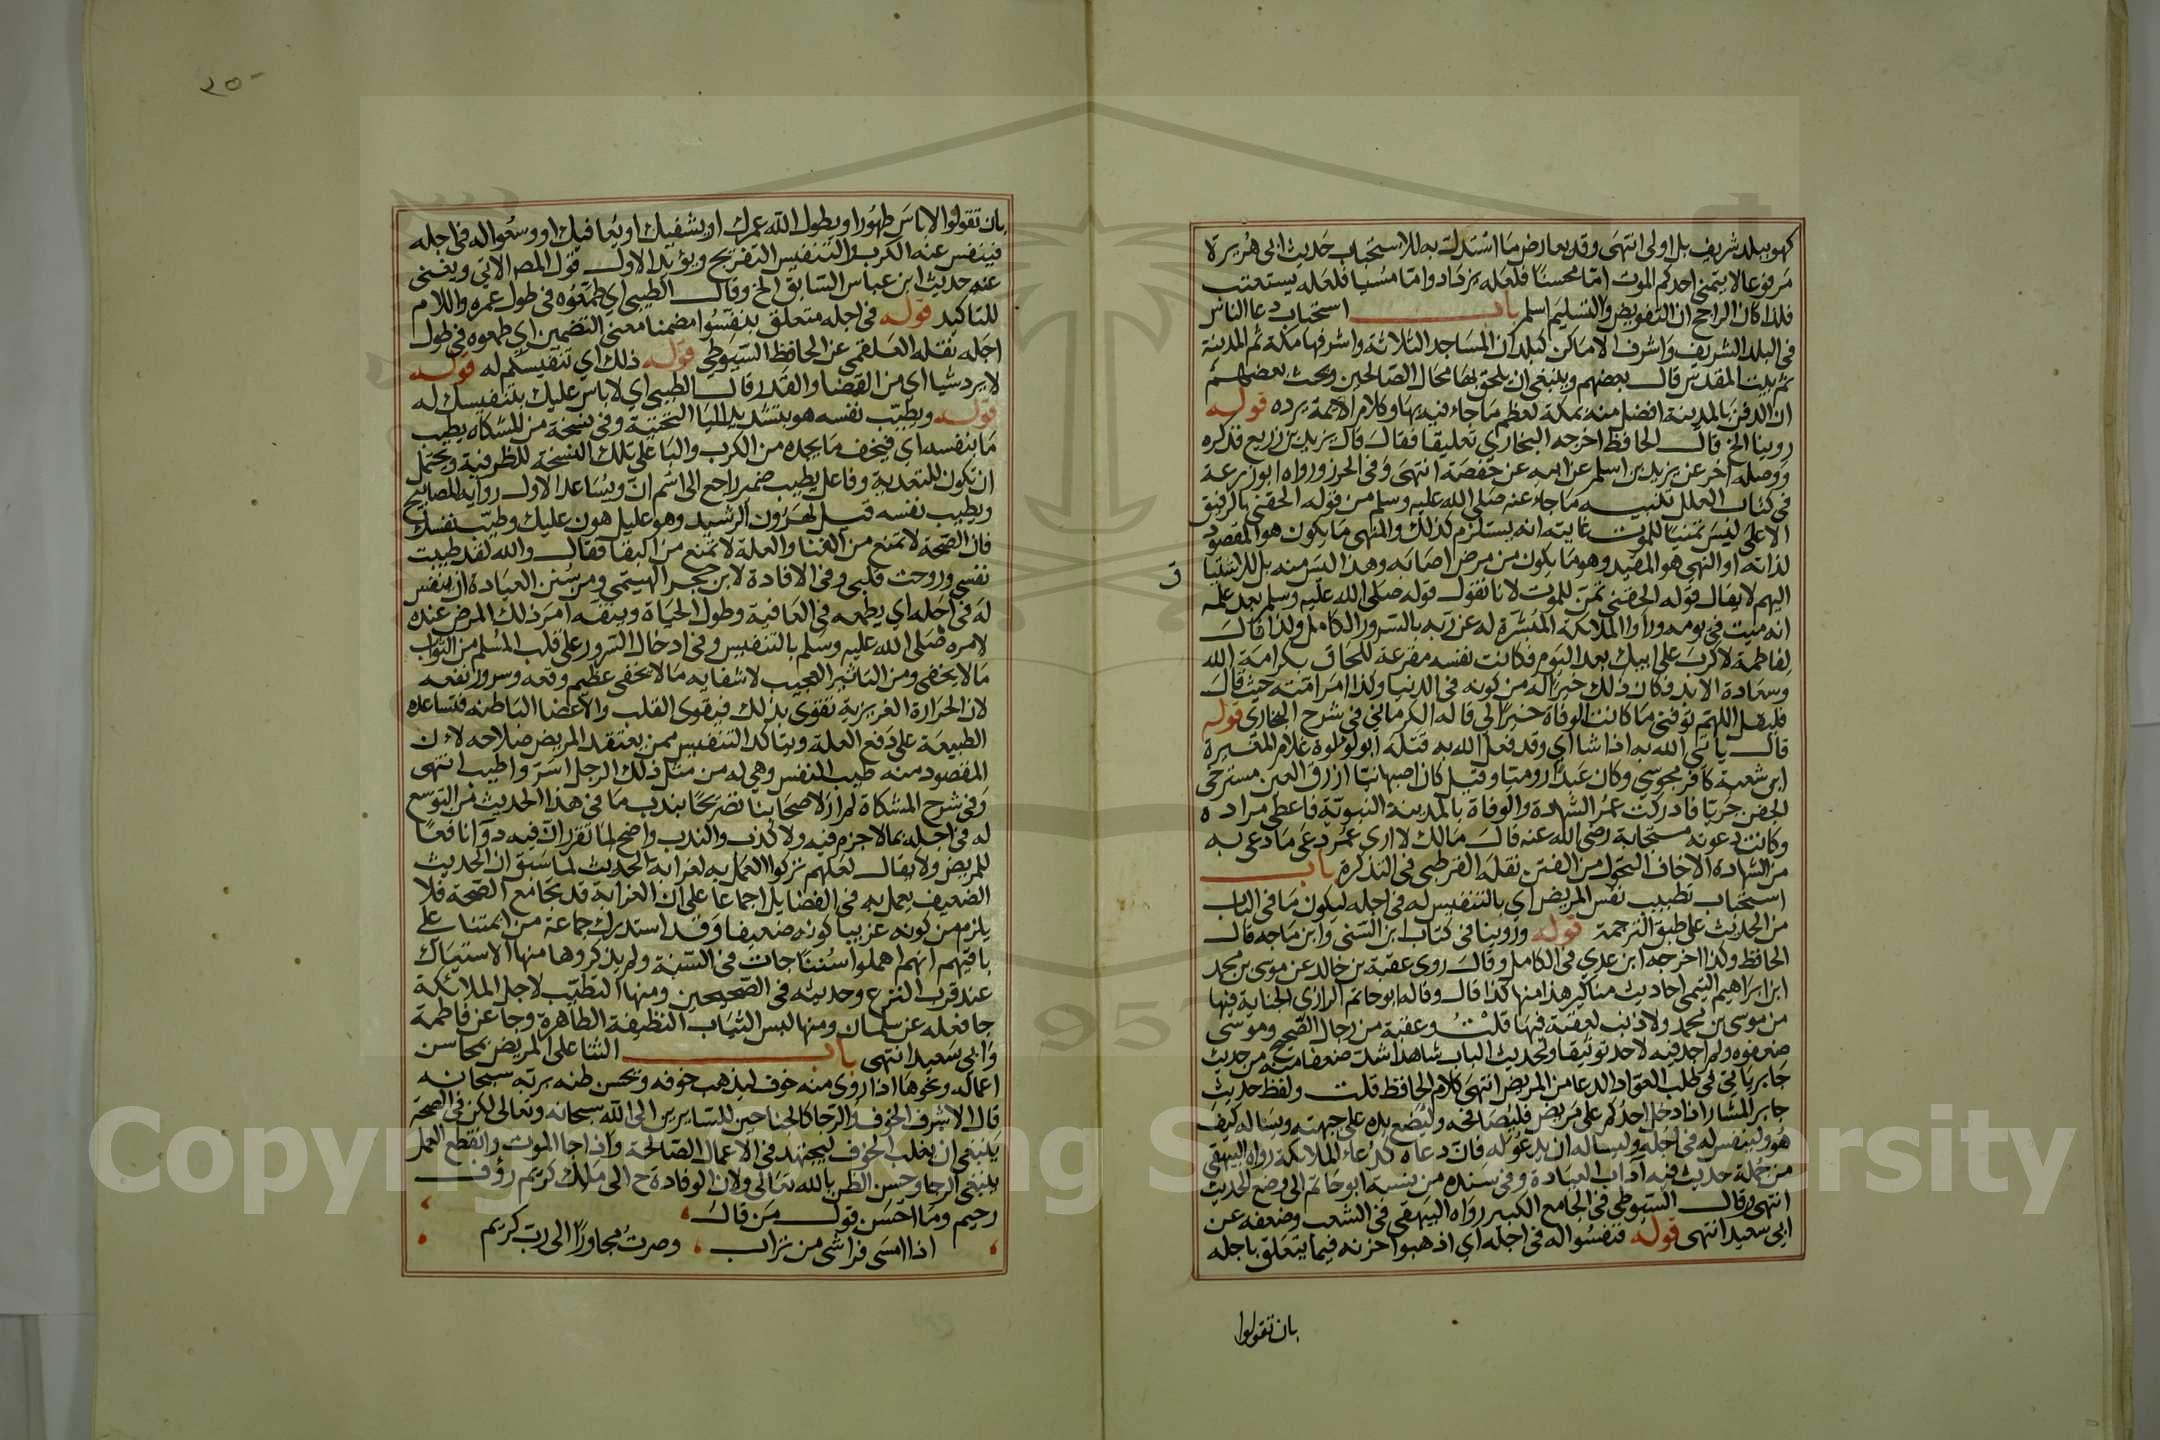 كهو ببلد شريف بل اولى انتهى وقد يعارض ما استدلت به للاستحباب حديث ابى هريرة
مرفوعا لا يتمنى احدكم الموت اما محسنا فلعله يزداد واما مسيا فلعله يستعتب
فلذا كان الراجح ان التفويض والتسليم اسلم باب استحباب دعا الناس
فى البلد الشريف واشرف الاماكن البلدان المساجد الثلاثة واشرفها مكة ثم المدينة
ثم بيت المقدس قال بعضهم وينبغى ان يلحق بها محال الصالحين وبحث بعضهم
ان الدفن بالمدينة افضل منه بمكة لعظم ما جاء فيه بها وكلام الائمة يرده قوله
روينا الخ قال الحافظ اخرجه البخاري تعليقا فقال قال يزيد بن زريع فذكره
ووصله اخر عن يزيد بن اسلم عن امه عن حفصة انتهى وفى الحرز ورواه ابو زرعة
فى كتاب العلل تنبيه ما جاء عنه صلى الله عليه وسلم من قوله الحقنى بالرفيق
الاعلى ليس تمنيا للموت غايته انه يستلزم ذلك والمنهى ما يكون هو المقصود
لذاته او النهى هو المقيد وهو ما يكون من مرض اصابه وهذا ليس منه بل للاشتياق
اليهم لا يقال قوله الحقنى تمن للموت لانا نقول قوله صلى الله عليه وسلم بعد علمه
انه ميت فى يومه وراوا الملائكة المبشرة له عن ربه بالسرور الكامل ولذا قال
لفاطمة لا كرب على ابيك بعد اليوم فكانت نفسه مفرغة للحاق بكرامة الله
وسعادة الابد فكان ذلك خيرا له من كونه فى الدنيا وكذا امر امته حيث قال
فليقل اللهم توفنى ما كانت الوفاة خيرا لي قاله الكرماني في شرح البخاري قوله
قال ياتى الله به اذا شا اي وقد فعل الله به قتله ابو لؤلوة غلام المغيرة
ابن شعبة كافر مجوسي وكان عبدا روميا وقيل كان اصبهانيا ازرق العين مسترخى
الجفن جريا فادركت عمر الشهادة والوفاة بالمدينة النبوية فاعطى مراده
وكانت دعوته مستجابة رضى الله عنه قال مالك لا ارى عمر دعى ما دعى به
من الشهادة الا خاف التحول من الفتن نقله القرطبى فى التذكرة باب
استحباب تطييب نفس المريض اي بالتنفيس له فى اجله ليكون ما فى الباب
من الحديث على طبق الترجمة قوله وروينا فى كتاب ابن السنى وابن ماجه قال
الحافظ وكذا اخرجه ابن عدي فى الكامل وقال روى عقبة بن خالد عن موسى بن محمد
ابن ابراهيم التيمى احاديث مناكير هذا منها كذا قال وقاله ابو حاتم الرازي الجناية فيها
من موسى بن محمد ولا ذنب لعقبة فيها قلت وعقبة من رجال الصحيح وموسى
ضعفوه ولم اجد فيه لاحد توثيقا ولحديث الباب شاهد اشد ضعفا منه من حديث
جابر ياتى فى طلب العواد الدعا من المريض انتهى كلام الحافظ قلت ولفظ حديث
جابر المشار اذا دخل احدكم على مريض فليصافحه وليضع يده على جبهته ويساله كيف
هو ولينفس له فى اجله وليساله ان يدعو له فان دعاه كدعاء الملائكة رواه البيهقى
من جملة حديث فيه اداب العيادة وفى سنده من نسبه ابو حاتم الى وضع الحديث
انتهى وقال السيوطى فى الجامع الكبير رواه البيهقى فى الشعب وضعفه عن
ابى سعيد انتهى قوله فنفسوا له فى اجله اي اذهبوا حزنه فيما يتعلق باجله
بان تقولوا
٢٥٠
بان تقولوا لا باس طهورا ويطول الله عمرك او يشفيك او يعافيك او وسعوا له فى اجله
فينفس عنه الكرب والتنفيس التفريج ويؤيد الاول قول المصر الاتي ويغنى
عنه حديث ابن عباس السابق الخ وقال الطيبى اي طمعوه فى طول عمره واللام
للتاكيد قوله فى اجله متعلق بنفسوا مضمنا معنى التضمين اي طمعوه فى طول
اجله نقله العلقمى عن الحافظ السيوطي قوله ذلك اي تنفيسكم له قوله
لا يرد شيا اى من القضا والقدر قال الطيبى اي لا باس عليك بتنفيسك له
قوله ويطيب نفسه هو بتشديد اليا التحتية وفى نسخة من المشكاة يطيب
ما بنفسه اي فيخف ما يجده من الكرب والبا على تلك النسخة للظرفية ويحتمل
ان تكون للتعدية وفاعل يطيب ضمير راجع الى اسم ان ويساعد الاول رواية المصابيح
ويطيب نفسه قيل لهرون الرشيد وهو عليل هون عليك وطيب نفسك
فان الصحة لا تمنع من الفنا والعلة لا تمنع من البقا فقال والله لقد طيبت
نفسي وروحت قلبي وفى الافادة لابن حجر الهيتمي ومن سنن العيادة ان ينفس
له فى اجله اي يطمعه فى العافية وطول الحياة وبنقه امر ذلك المرض عنده
لامره صلى الله عليه وسلم بالتنفيس وفى ادخال السرور على قلب المسلم من الثواب
ما لا يخفى ومن التاثير العجيب لاشفايه ما لا يخفى عظيم وقعه وسرور نفعه
لان الحرارة الغريزية تقوى بذلك فيقوى القلب والاعضا الباطنه فتساعده
الطبيعة على دفع العلة ويتاكد التنفيس ممن يعتقد المريض صلاحه لان
المقصود منه طيب النفس وهي له من مثل ذلك الرجل اسر واطيب انتهى
وفى شرح المشكاة لم ار لاصحابنا تصريحا بندب ما فى هذا الحديث من التوسع
له فى اجله بما لا جزم فيه ولا كذب والندب واضح لما تقرر ان فيه دوا نافعا
للمريض ولا يقال لعلهم تركوا العمل به لغرابة الحديث لما سبق ان الحديث
الضعيف يعمل به فى الفضايل اجماعا على ان الغرابة قد تجامع الصحة فلا
يلزم من كونه غريبا كونه ضعيفا وقد استدرك جماعة من ايمتنا على
باقيهم انهم اهملوا سننا جات فى السنة ولم يذكروها منها الاستياك
عند قرب النزع وحديثه فى الصحيحين ومنها التطيب لاجل الملائكة
جا فعله عن سلمان ومنها لبس الثياب النظيفة الطاهرة وجا عن فاطمة
وابى سعيد انتهى باب الثنا على المريض بمحاسن
اعماله ونحوها اذا روى منه خوف ليذهب خوفه ويحسن ظنه بربه سبحانه
قال الاشرف الخوف والرجا كالجناحين للسايرين الى الله سبحانه وتعالى لكن فى الصحة
ينبغى ان يغلب الخوف ليجتهد فى الاعمال الصالحة واذا جا الموت وانقطع العمل
ينبغى الرجا وحسن الظن بالله تعالى ولان الوفادة ح الى ملك كريم رؤف
رحيم وما احسن قول من قال
اذا امسى فراشى من تراب وصرت مجاورا الى رب كريم
Copyright King University